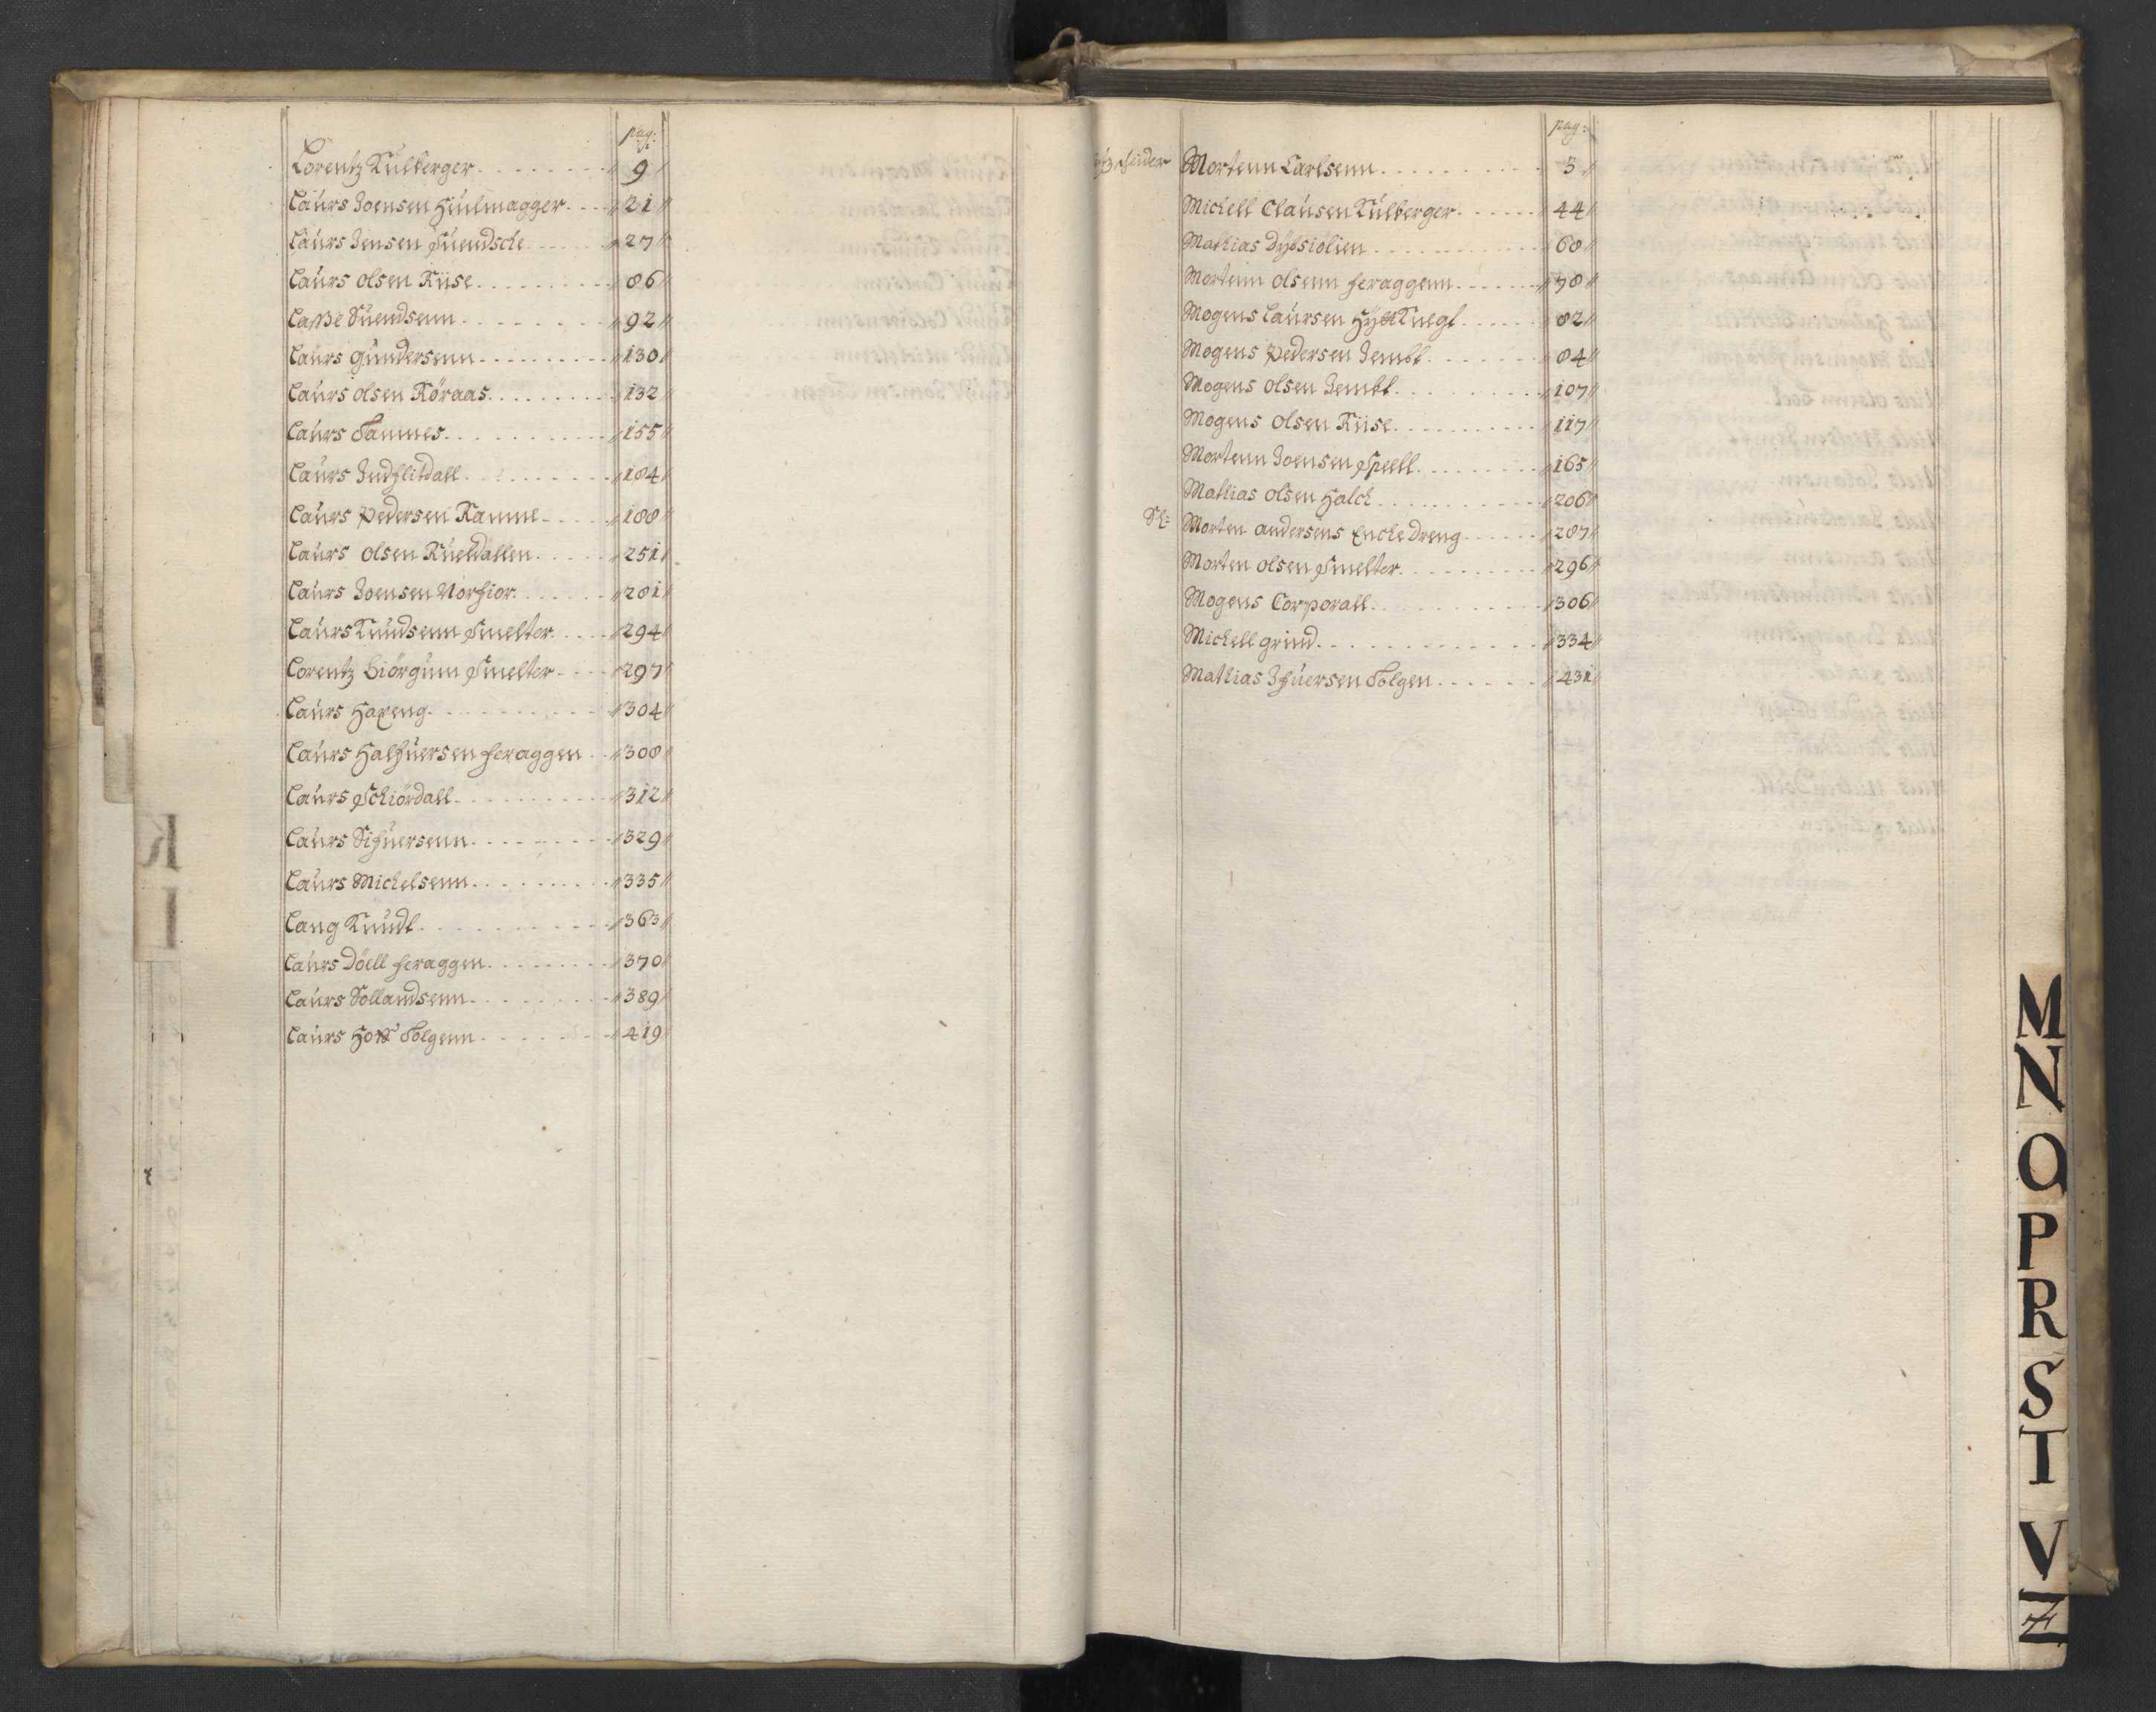 pag:
Lorentz Kulberger 9
Laurs Joensen Hiulmagger 21
Laurs Jensen Suendsche 27
Laurs Olsen Riise 86
Lasse Suendsenn 92
Laurs Gundersenn 130
Laurs Olsen Röraas 132
Laurs Tamnes 155
Laurs 184
Laurs Pedersen Ramme 188
Laurs Olsen 251
Laurs Joensen 281
Laurs Knudsenn Smelter 294
Lorentz Biörgum Smelter 297
Laurs Hareng 304
Laurs Halfuersen feraggen 308
Laurs Schiördall 312
Laurs Sifuersenn 329
Laurs Michelsenn 335
Lang Knudt 363
Laurs Döell feraggen 370
Laurs Tollandsenn 389
Laurs Tolgenn 419
K
L
pag:
Mortenn Carlsenn 5
Michell Clausen Kulberger 44
Mathias 68
Mortenn Olsenn feraggenn 78
Mogens Laursen 82
Mogens Pedersen Jembt 84
Mogens Olsen Jembt 107
Mogens Olsen Riise 117
Mortenn Joensen Spell 165
Mathias Olsen Halck 206
Sl: Morten Andersens Enche Dreng 287
Morten Olsen Smelter 296
Mogens Corporall 306
Michell Grind 334
Mathias Ifuersen Tolgen 431
M
N
O
P
R
S
T
V
Z